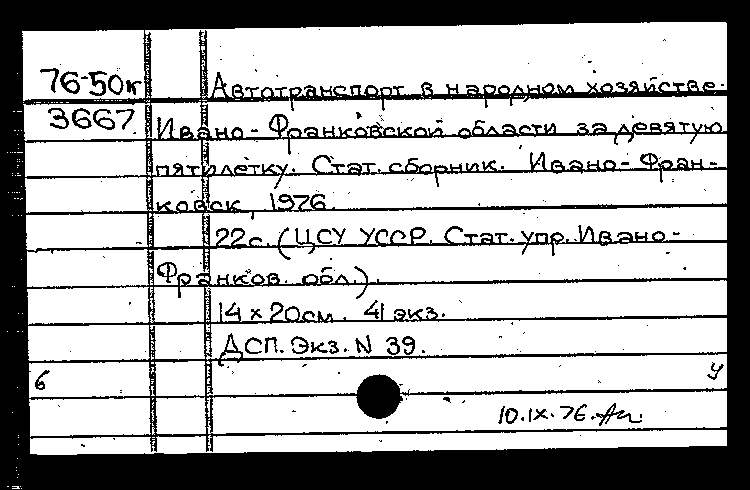 76-50к Автотранспорт в народном хозяйстве
3667 Ивано-Франковской области за девятую
пятилетку. Стат. сборник. Ивано-Фран-
ковск, 1976.
22с. (ЦСУ УССР. Стат. упр. Ивано-
Франков. обл.).
14 x 20см. 41 экз.
ДСП. Экз. N 39.
6 У
10.IX.76.